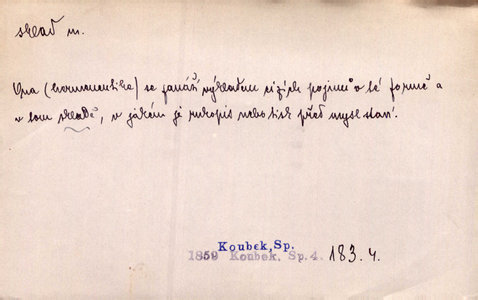 sklad m.
Ona (hermeneutika) se zanáší výkladem cizích pojmů v té formě a
v tom skladě, v jakém je rukopis nebo tisk před mysl staví.
Koubek, Sp.
1859 Koubek, Sp. 4. 183. 4.